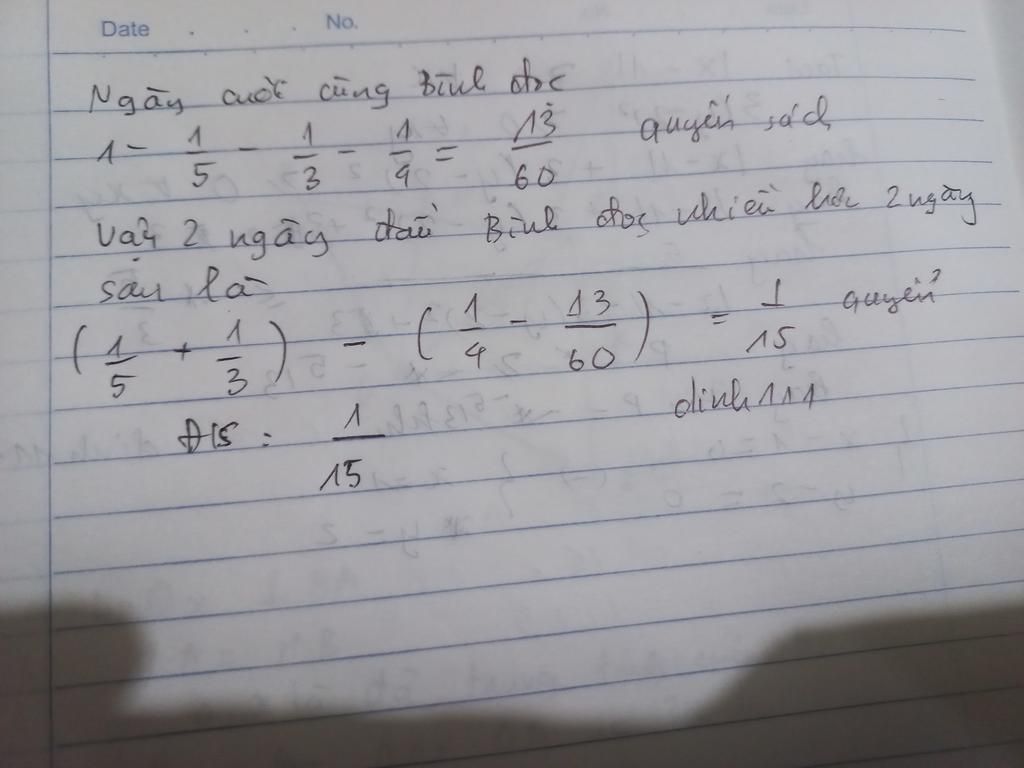 Date . . . No.
Ngày cuối cùng Bình đọc
1 - 1/5 - 1/3 - 1/4 = 13/60 quyển sách
Vậy 2 ngày đầu Bình đọc nhiều hơn 2 ngày
sau là
(1/5 + 1/3) - (1/4 - 13/60) = 1/15 quyển
Đ/S : 1/15 dinh111